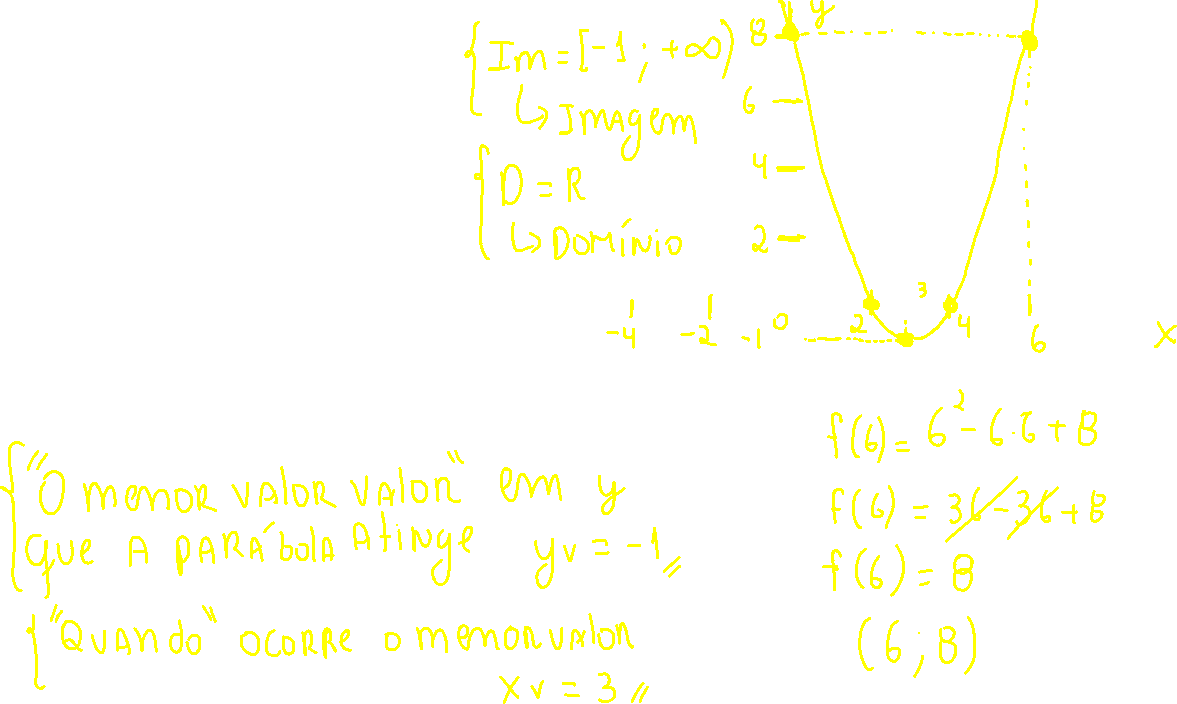 y
Im = [-1; +∞)
↳ Imagem
D = R
↳ Domínio
8
6
4
2
-4 -2 -1 0 2 3 4 6 x
f(6) = 6² - 6.6 + 8
f(6) = 36 - 36 + 8
f(6) = 8
(6; 8)
"O menor valor valor" em y
que a parábola atinge yv = -1
"Quando" ocorre o menor valor
xv = 3